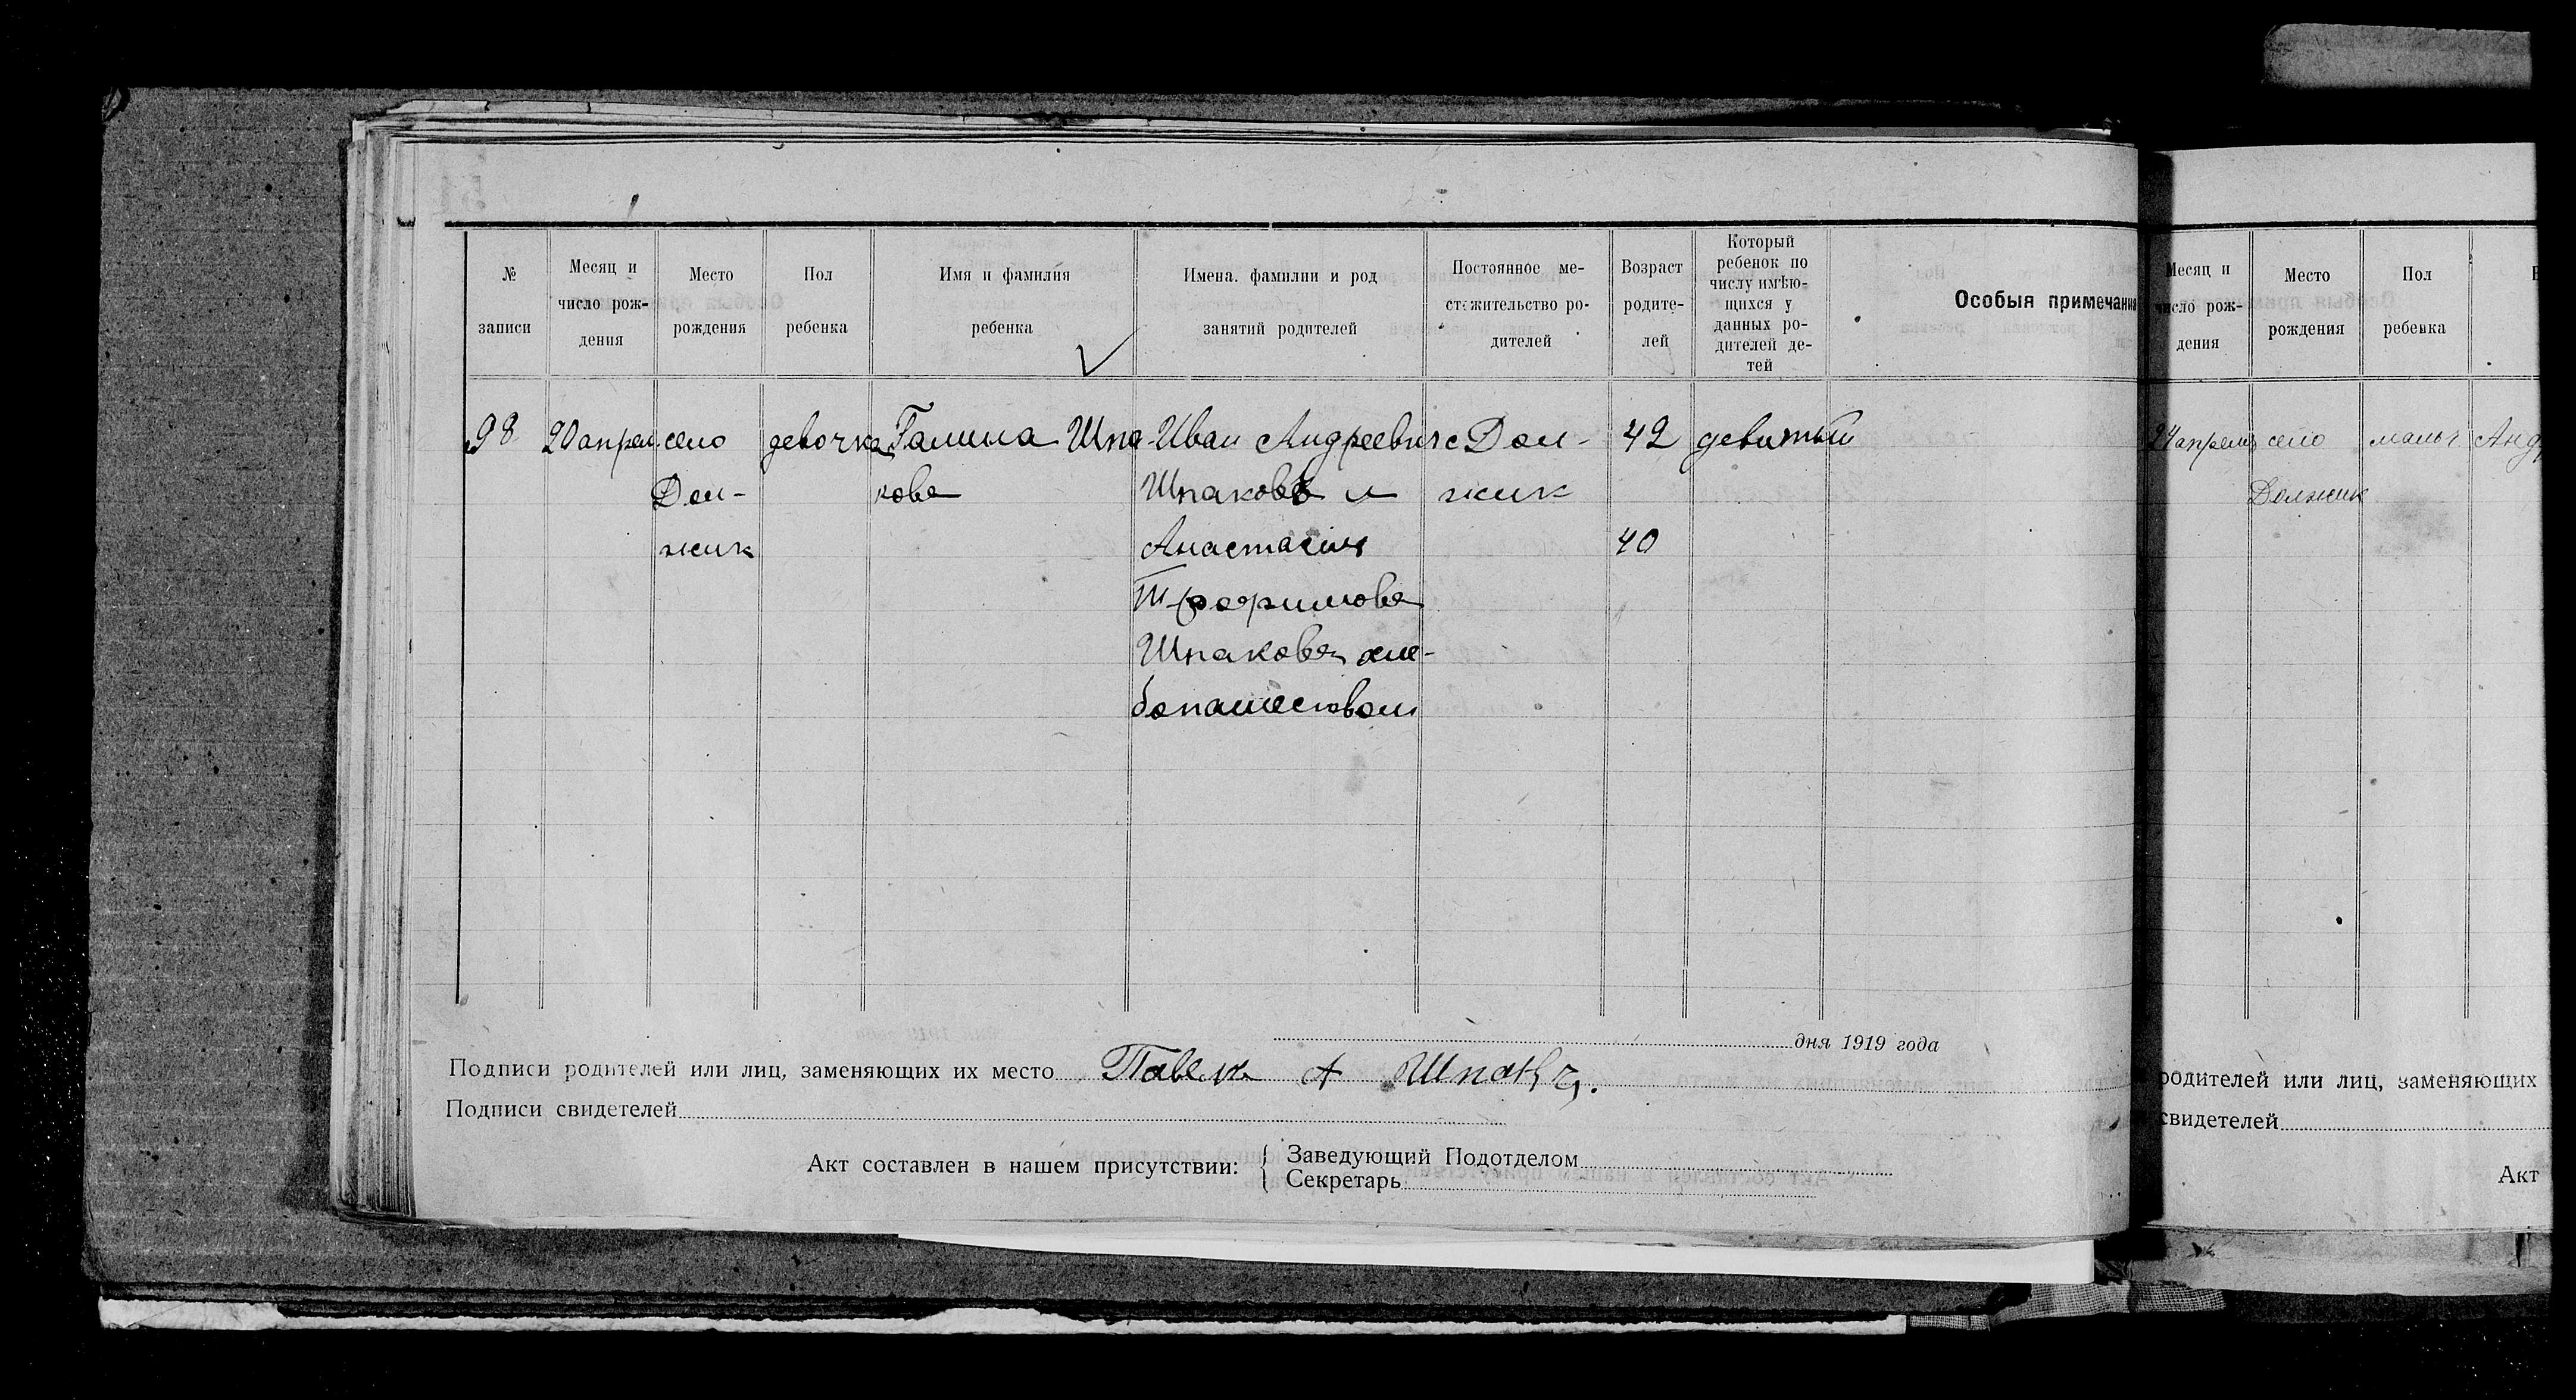 № записи
Месяц и число рождения
Место рождения
Пол ребенка
Имя и фамилия ребенка
Имена, фамилии и род занятий родителей
Постоянное местожительство родителей
Возраст родителей
Который ребенок по числу имѣющихся у данных родителей детей
Особыя примечани
98 20 апрел село девочка Галина Шпа- Иван Андреевич с Дол- 42 девятый
Дол- кова Шпаковъ и жик
жик Анастасия 40
Трофимова
Шпакова хле-
бопашеством
дня 1919 года
Подписи родителей или лиц, заменяющих их место Павел А
Подписи свидетелей
Акт составлен в нашем присутствии: { Заведующий Подотделом
Секретарь
Месяц и число рождения
Место рождения
Пол ребенка
24 апреля село мальч Анд
Должик
родителей или лиц, заменяющих
свидетелей
Акт